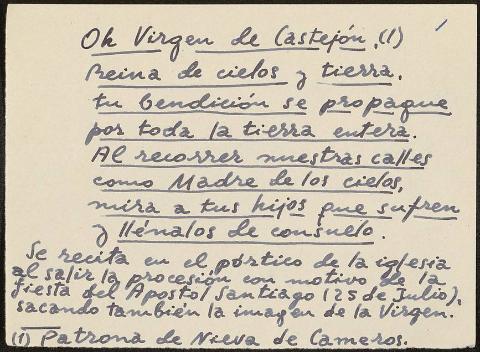 Oh Virgen de Castejón, (1)
Reina de cielos y tierra,
tu bendición se propague
por toda la tierra entera.
Al recorrer nuestras calles
como Madre de los cielos,
mira a tus hijos que sufren
y llénalos de consuelo.
Se recita en el pórtico de la iglesia
al salir la procesión con motivo de la
fiesta del Apostol Santiago (25 de Julio),
sacando también la imagen de la Virgen.
(1) Patrona de Nieva de Cameros.